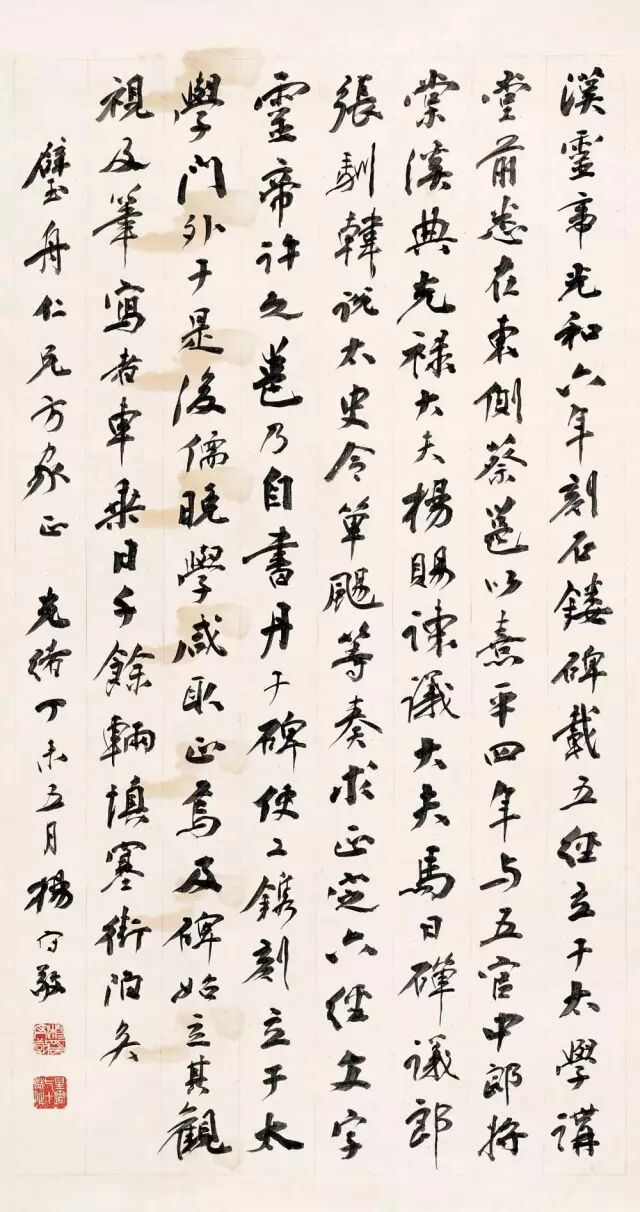 漢靈帝光和六年刻石鏤碑載五經立于太學講
堂前悉在東側蔡邕以熹平四年与五官中郎將
棠溪典光祿大夫楊賜諫議大夫馬日磾議郎
張馴韓說太史令單颺等奏求正定六經文字
靈帝許之邕乃自書丹于碑使工鐫刻立于太
學門外于是後儒晚學咸取正焉及碑始立其觀
視及筆寫者車乘日千餘輛填塞街陌矣
璧舟仁兄方家正 光緒丁未五月楊守敬